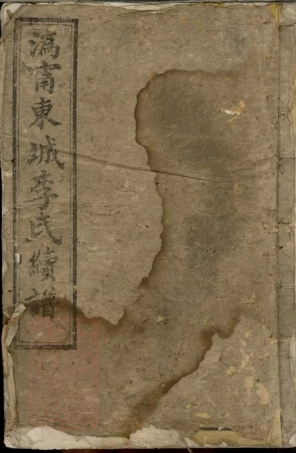 溈甯東城李氏續譜